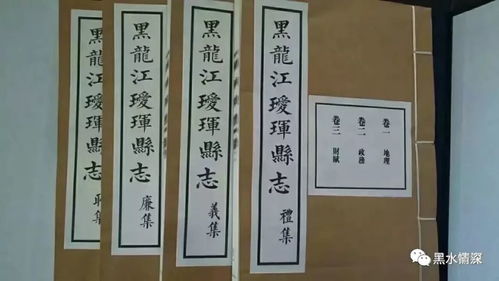 卷一 地理
卷二 政務
卷三 財賦
黑龍江璦琿縣志
禮集
黑龍江璦琿縣志
義集
黑龍江璦琿縣志
廉集
黑龍江璦琿縣志
集
黑水情深